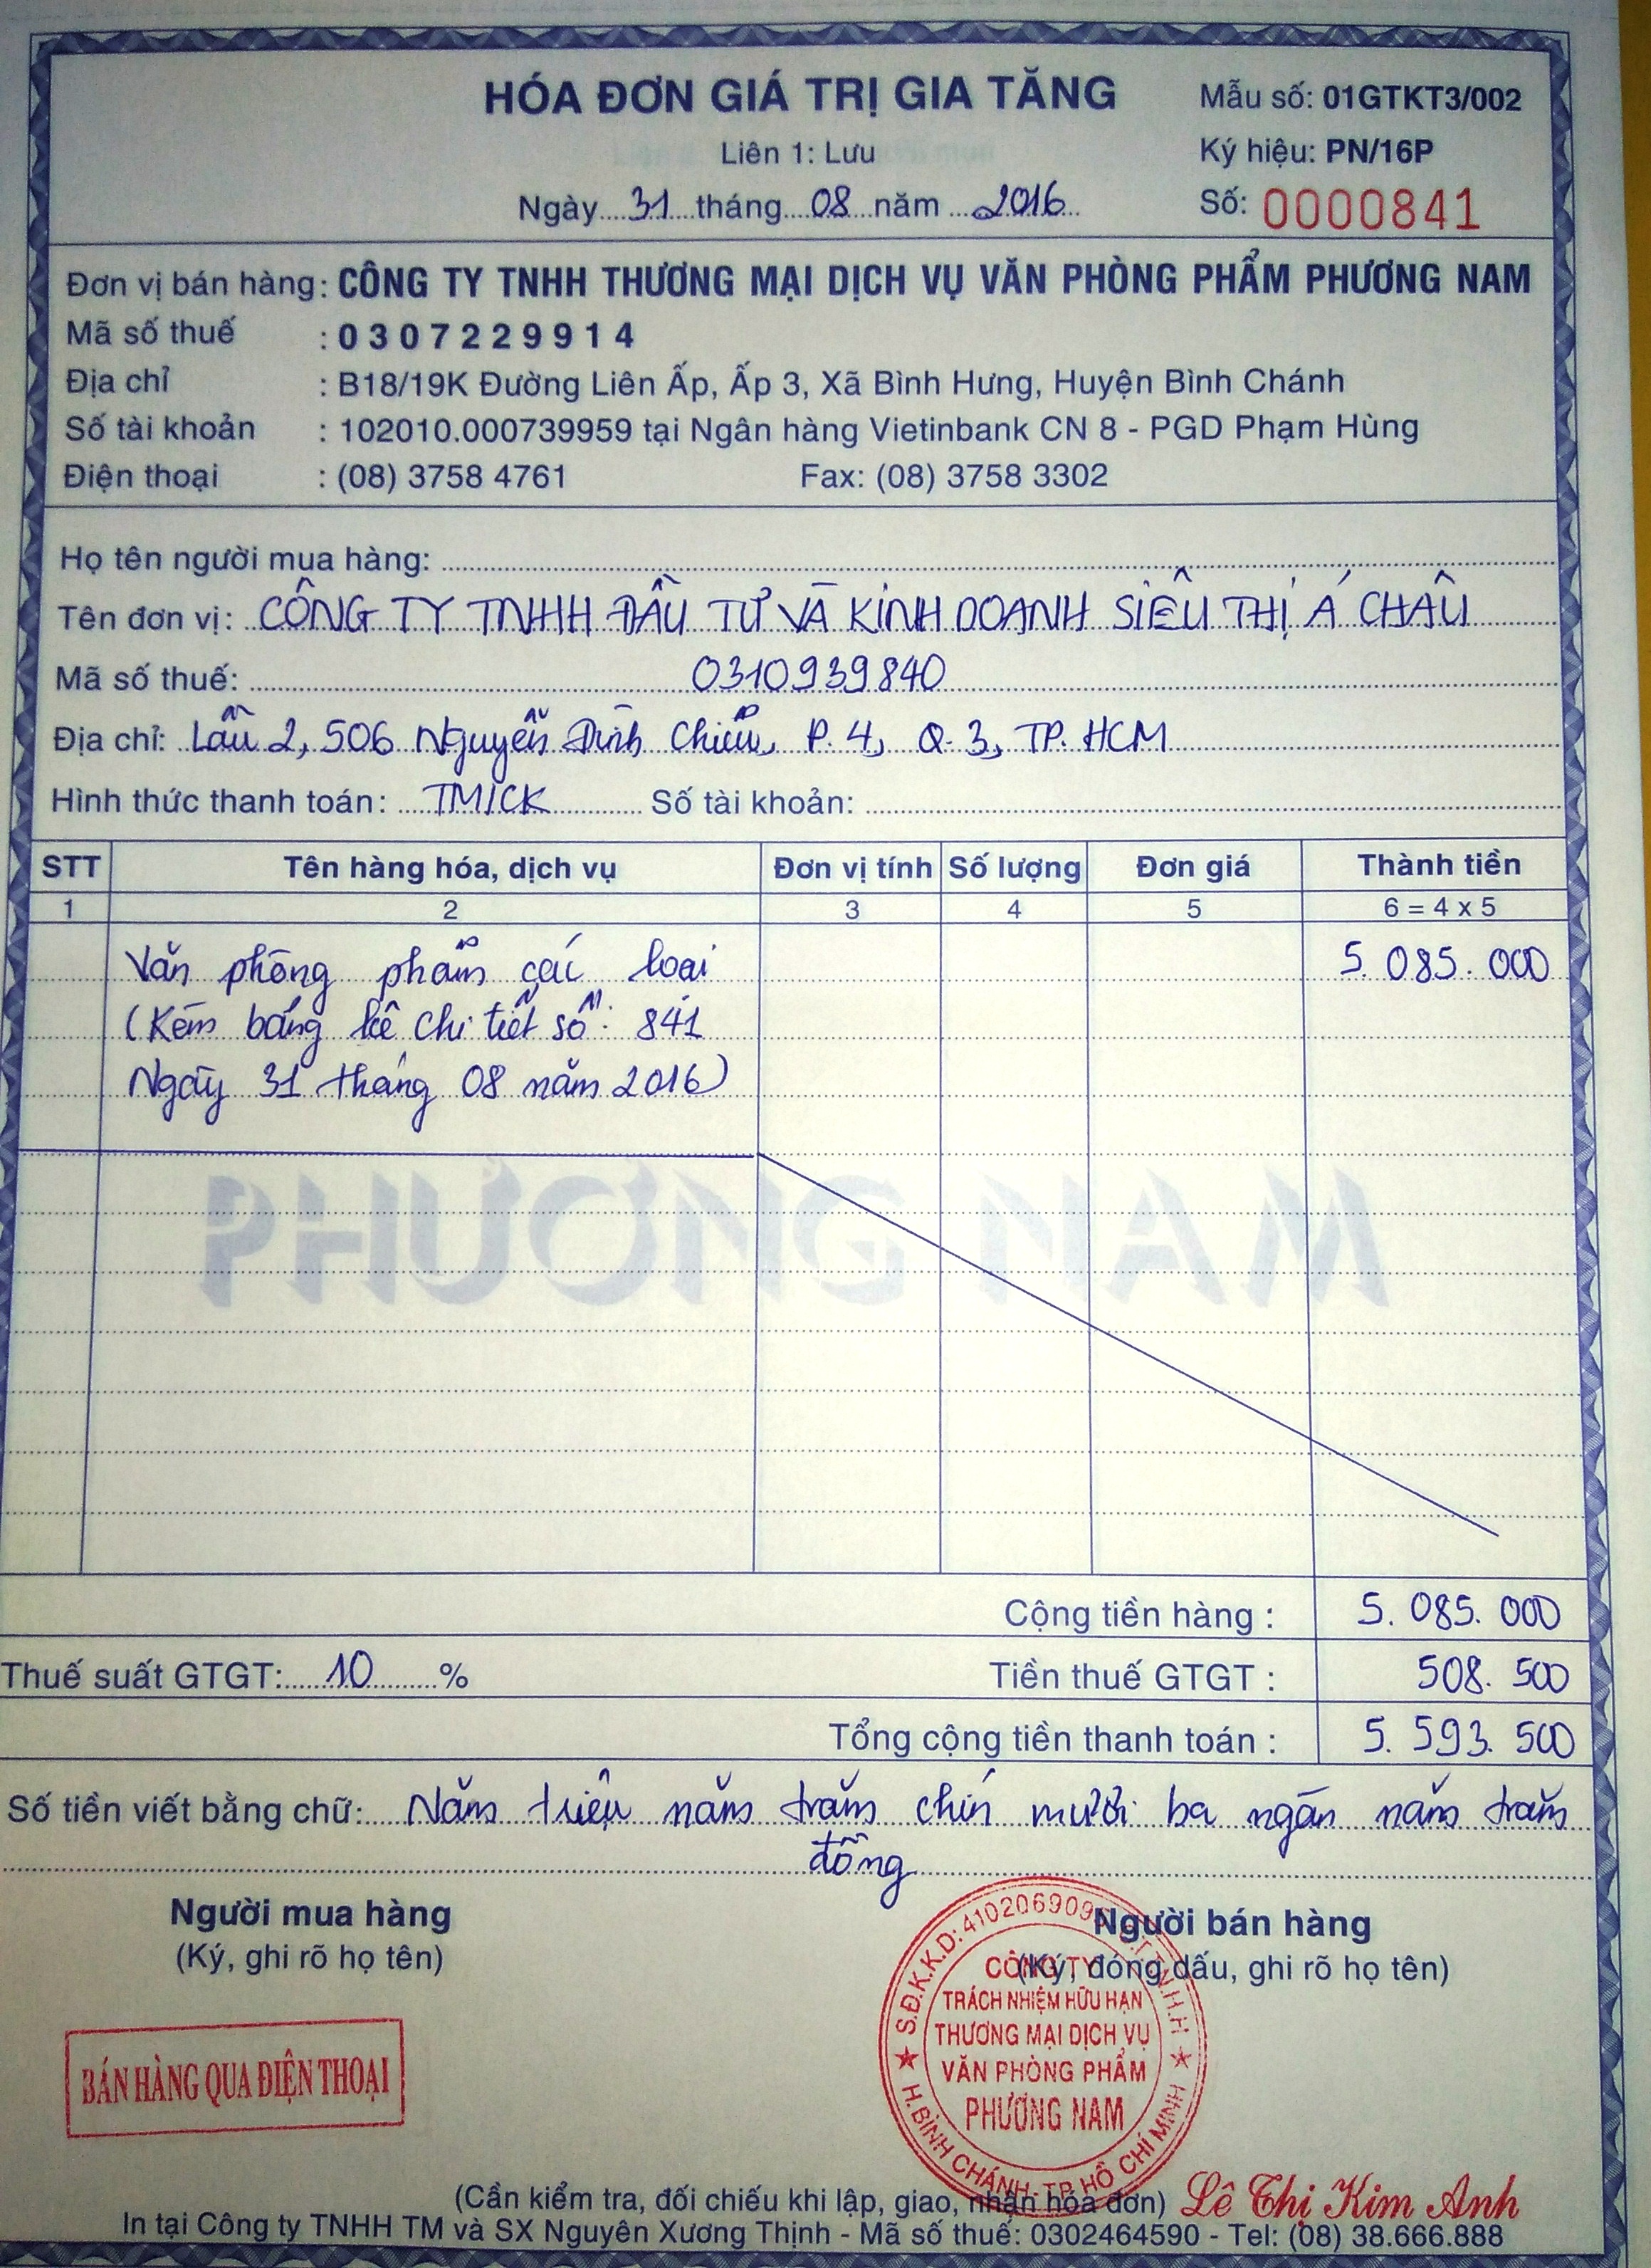 HÓA ĐƠN GIÁ TRỊ GIA TĂNG
Mẫu số: 01GTKT3/002
Liên 1: Lưu
Ký hiệu: PN/16P
Ngày 31 tháng 08 năm 2016
Số: 0000841
Đơn vị bán hàng: CÔNG TY TNHH THƯƠNG MẠI DỊCH VỤ VĂN PHÒNG PHẨM PHƯƠNG NAM
Mã số thuế : 0307229914
Địa chỉ : B18/19K Đường Liên Ấp, Ấp 3, Xã Bình Hưng, Huyện Bình Chánh
Số tài khoản : 102010.000739959 tại Ngân hàng Vietinbank CN 8 - PGD Phạm Hùng
Điện thoại : (08) 3758 4761 Fax: (08) 3758 3302
Họ tên người mua hàng:
Tên đơn vị: CÔNG TY TNHH ĐẦU TƯ VÀ KINH DOANH SIÊU THỊ Á CHÂU
Mã số thuế: 0310939840
Địa chỉ: Lầu 2, 506 Nguyễn Đình Chiểu, P. 4, Q. 3, TP. HCM
Hình thức thanh toán: TM/CK Số tài khoản:
STT Tên hàng hóa, dịch vụ Đơn vị tính Số lượng Đơn giá Thành tiền
1 2 3 4 5 6 = 4 x 5
Văn phòng phẩm các loại 5. 085. 000
(Kèm bảng kê chi tiết số: 841
Ngày 31 tháng 08 năm 2016)
PHƯƠNG NAM
Cộng tiền hàng : 5. 085. 000
Thuế suất GTGT: 10 % Tiền thuế GTGT : 508. 500
Tổng cộng tiền thanh toán : 5. 593. 500
Số tiền viết bằng chữ: Năm triệu năm trăm chín mươi ba ngàn năm trăm
đồng
Người mua hàng
(Ký, ghi rõ họ tên)
Người bán hàng
(Ký, đóng dấu, ghi rõ họ tên)
BÁN HÀNG QUA ĐIỆN THOẠI
S.Đ.K.K.D: 410206909 T.N.H.H
CÔNG TY
TRÁCH NHIỆM HỮU HẠN
THƯƠNG MẠI DỊCH VỤ
VĂN PHÒNG PHẨM
PHƯƠNG NAM
H. BÌNH CHÁNH - T.P HỒ CHÍ MINH
Lê Thị Kim Anh
(Cần kiểm tra, đối chiếu khi lập, giao, nhận hóa đơn)
In tại Công ty TNHH TM và SX Nguyên Xương Thịnh - Mã số thuế: 0302464590 - Tel: (08) 38.666.888